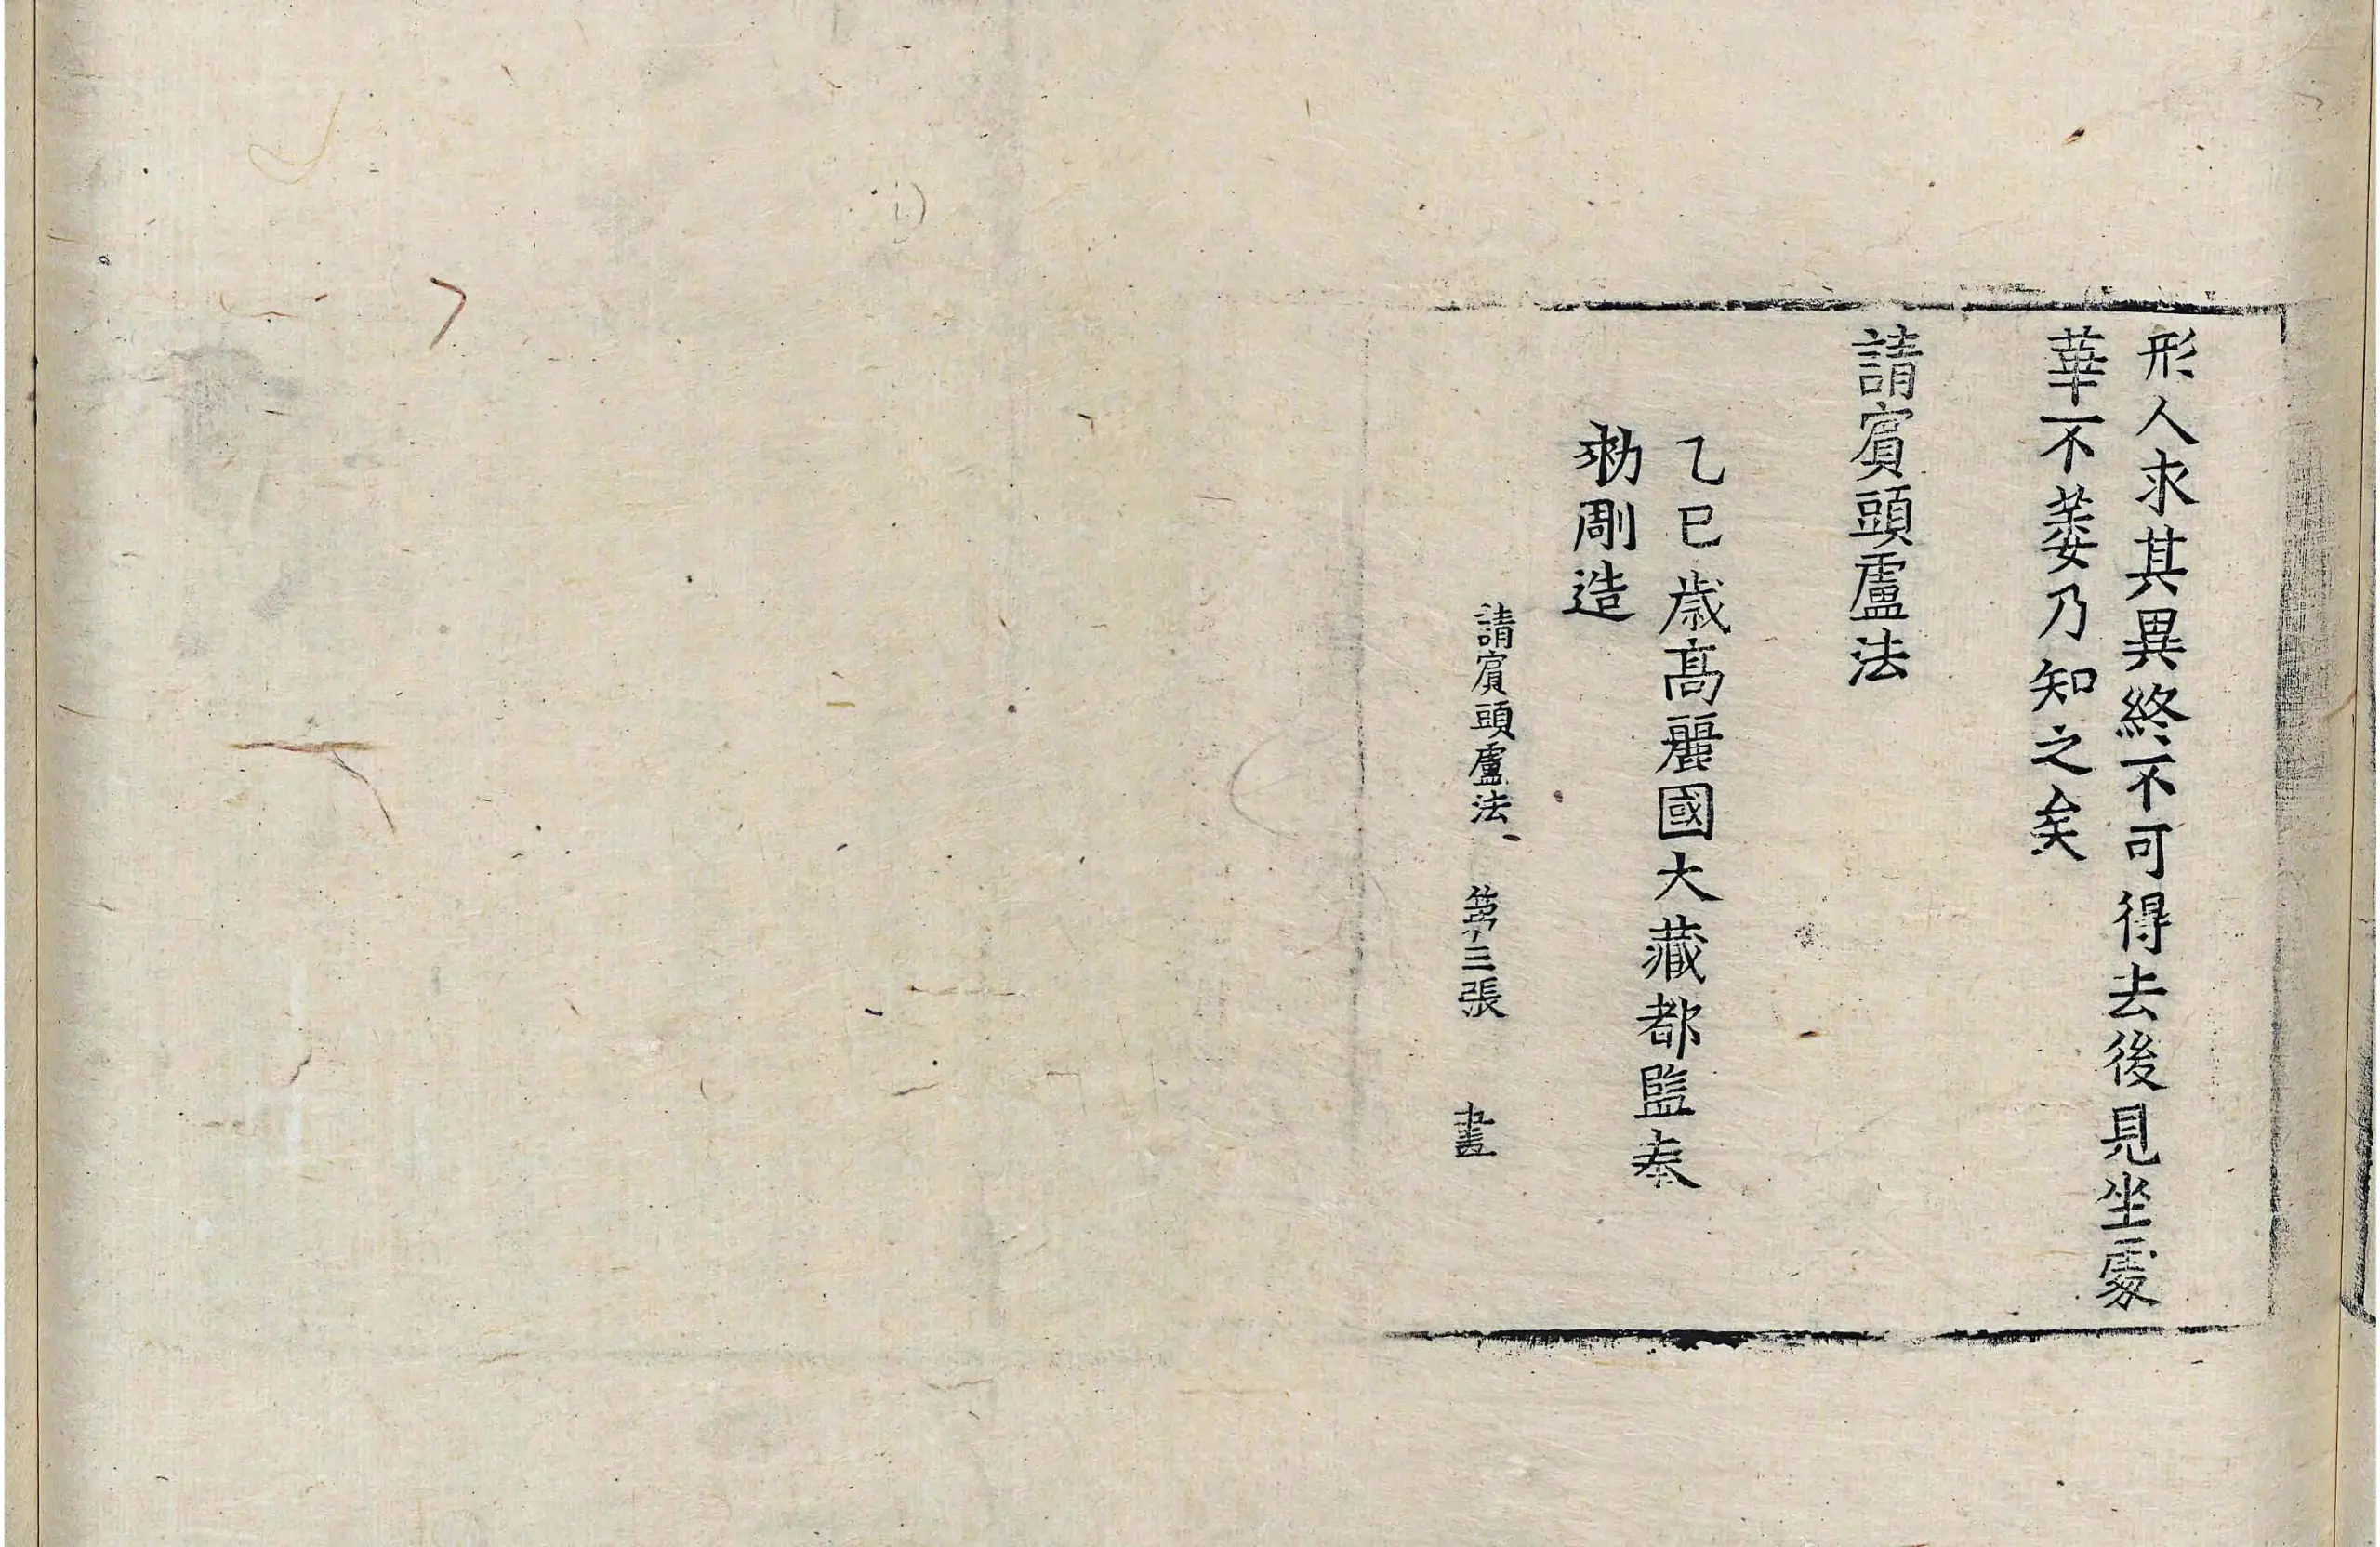 形人求其異終不可得去後見坐䖏
華不萎乃知之矣
請賔頭盧法
乙巳歳高麗國大藏都監奉
勑彫造
請賔頭盧法 第三張 畫